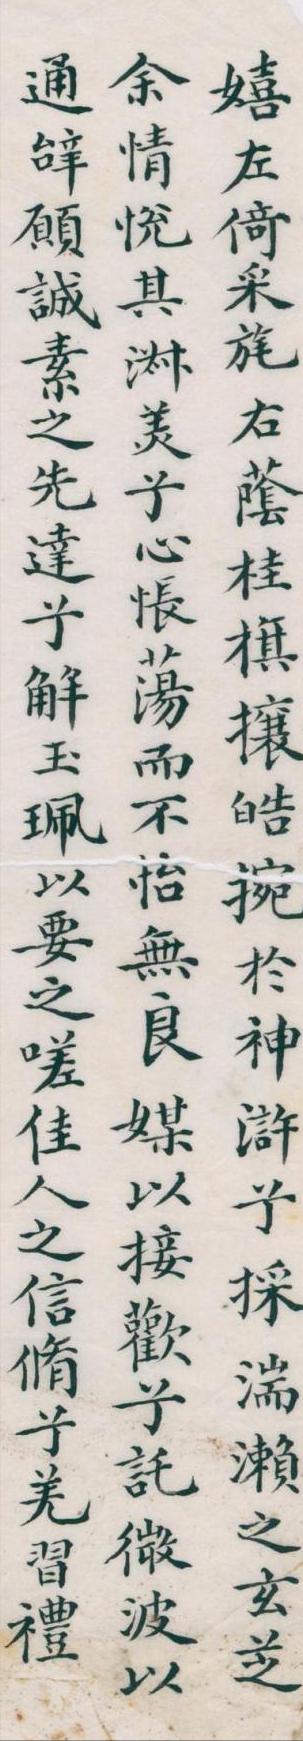 嬉左倚采旄右蔭桂旗攘皓捥於神滸兮採湍瀨之玄芝
余情悅其淋美兮心悵蕩而不怡無良媒以接歡兮託微波以
通辝願誠素之先達兮解玉珮以要之嗟佳人之信脩兮羌習禮